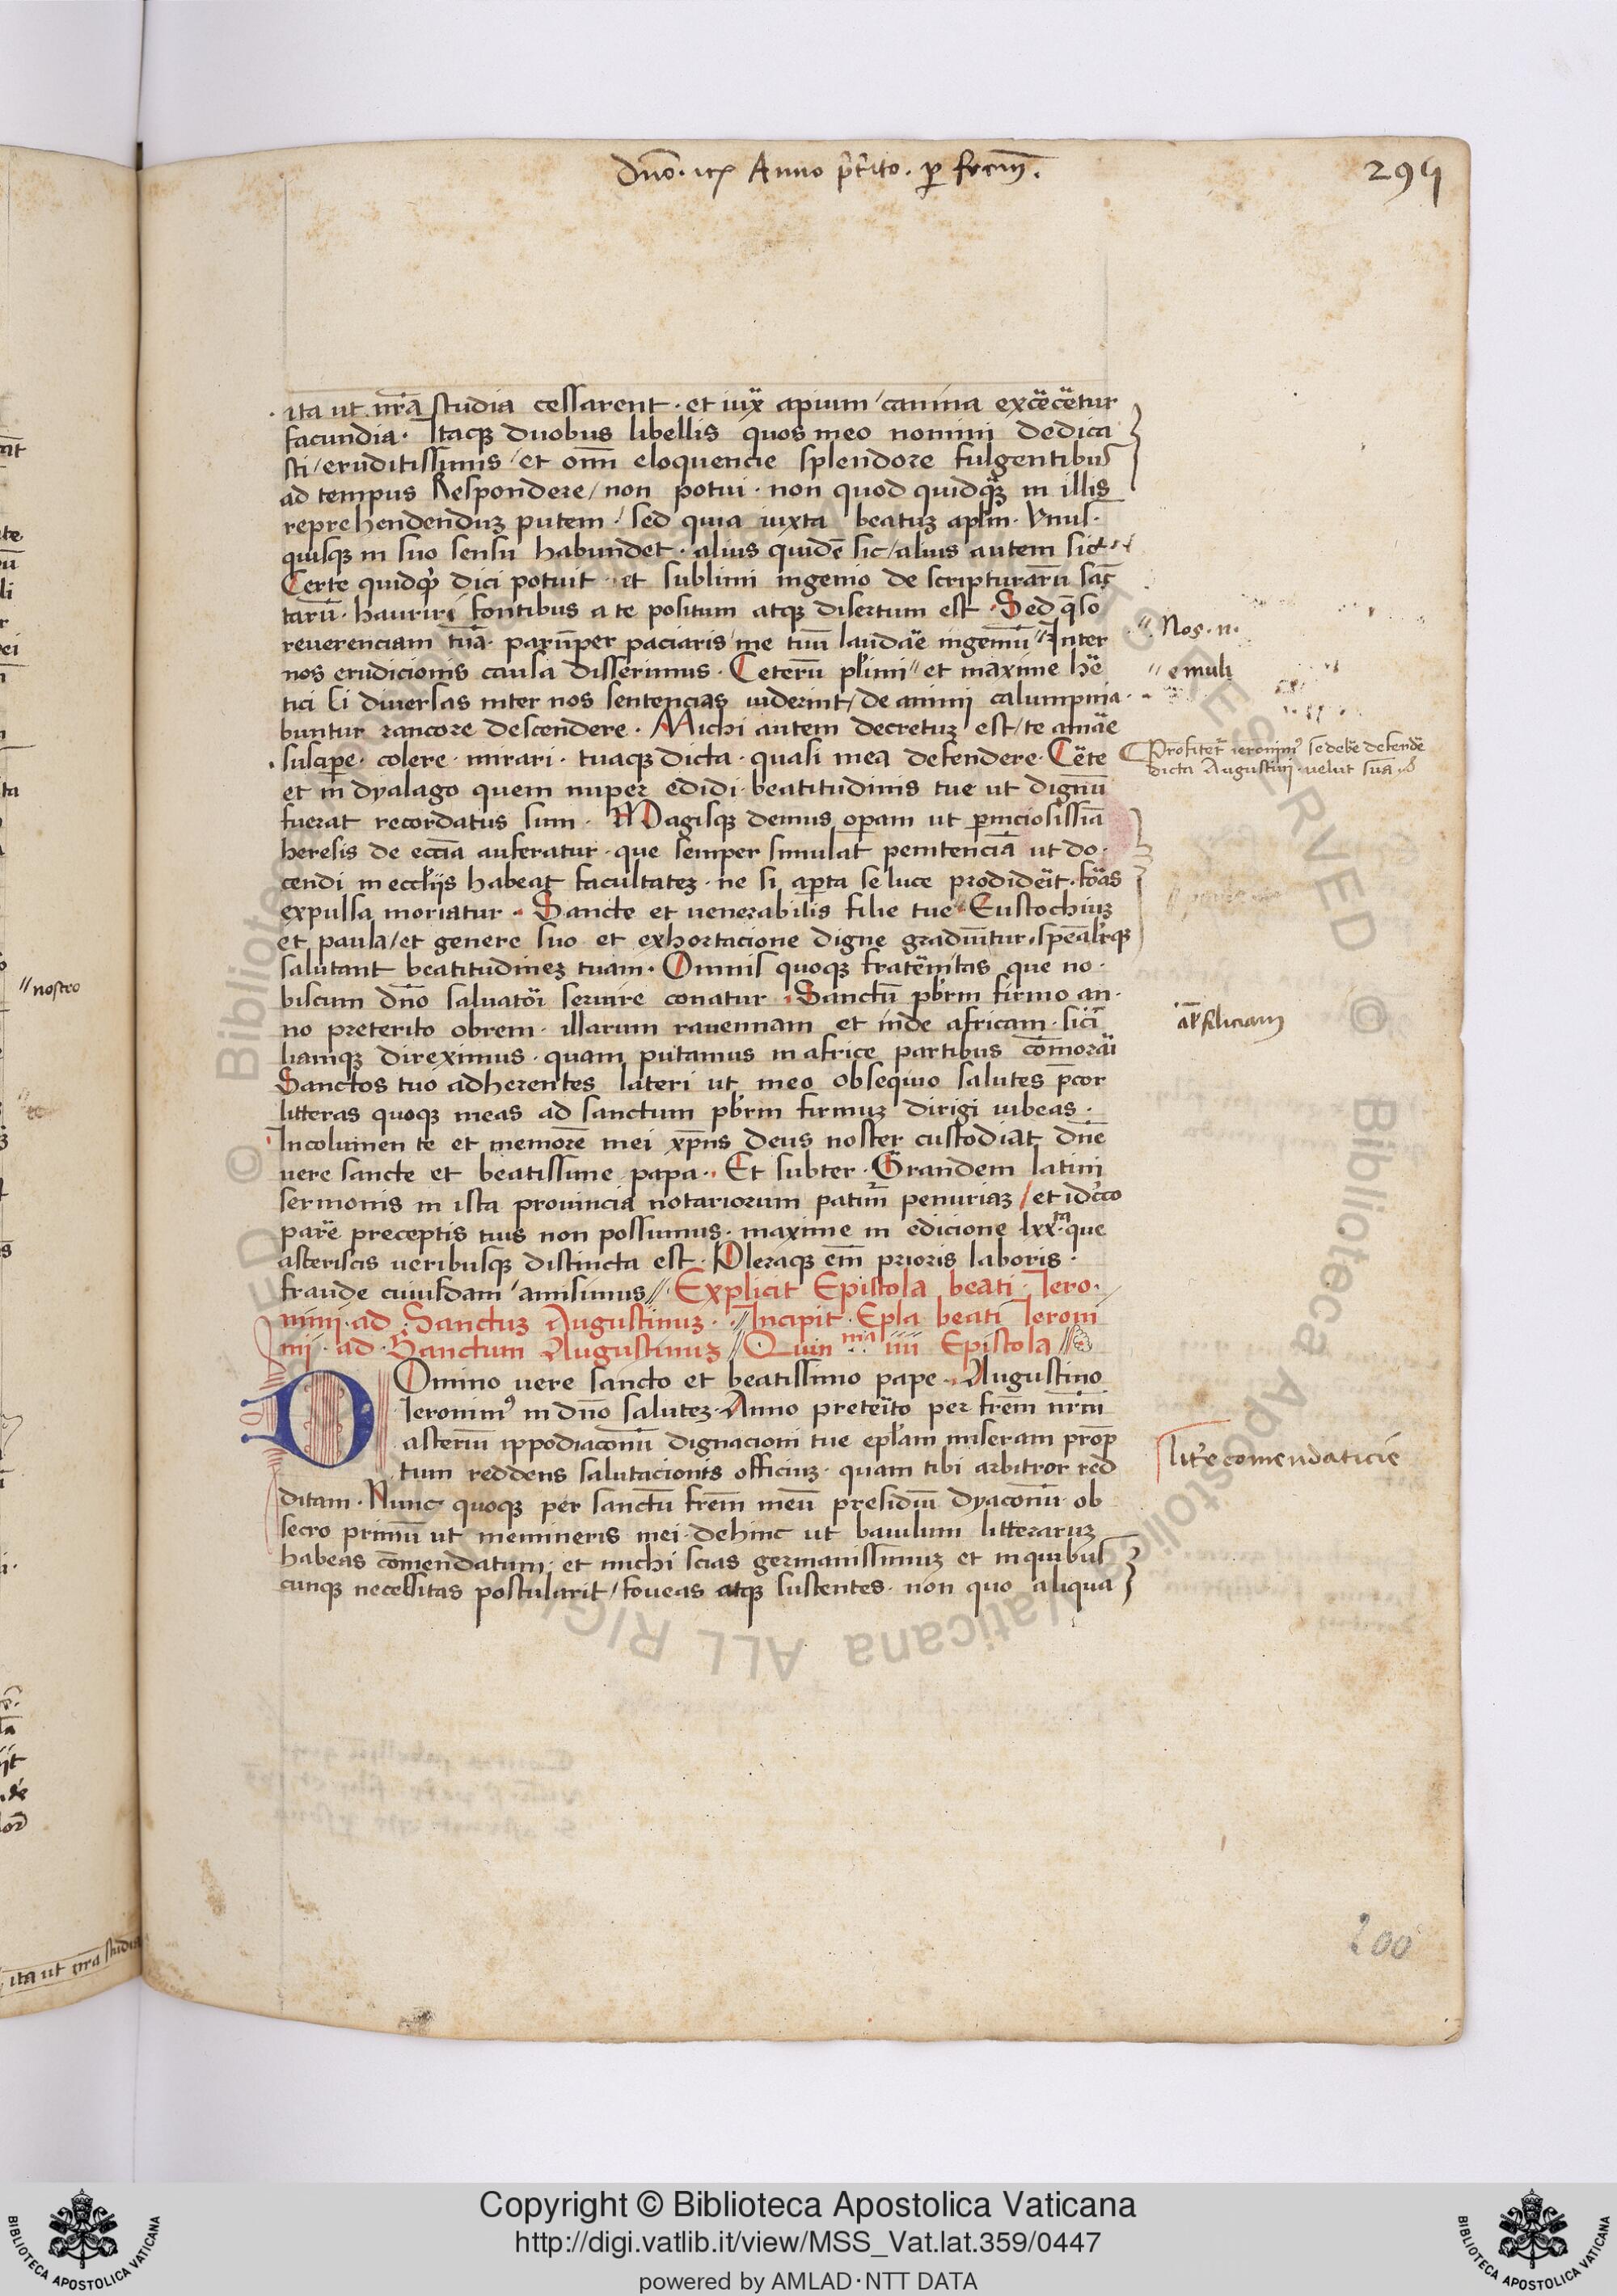 dn̄o . ico Anno p̄t'ito . ꝑ fr̄em̄ .
294
ita ut nr̄a studia cessarent · et iux̄ apium / canina exc̄ec̄etur
facundia · Itaqꝫ duobus libellis quos meo nomini dedica
sti / eruditissimis / et om̄i eloquencie splendore fulgentibus
ad tempus Respondere / non potui · non quod quidq̄ꝫ in illis
reprehendenduꝫ putem / sed quia iuxta beatuꝫ apl̄m · Vnus
quisqꝫ in suo sensu habundet · alius quidē sic / alius autem sic
Certe quidqͥd dici potuit · et sublimi ingenio de scripturarū sāc
tarū · hauriri fontibus a te positum atqꝫ disertum est · Sed q̄so
reuerenciam tuā · parūper paciaris me tuū laudāe ingeniū // Inter
nos erudicionis causa disserimus · Ceterū pl̄imi // et maxime hē
tici si diuersas inter nos sentencias uiderint / de animi calumpnia
buntur rancore descendere · Michi autem decretuꝫ est / te amāe
suscipe · colere · mirari · tuaqꝫ dicta · quasi mea defendere · C̄ete
et in dyalago quem nuper edidi · beatitudinis tue ut dignū
fuerat recordatus sum · Magisqꝫ demus oꝑam ut ꝑniciosissīa
heresis de ecc̄ia auferatur · que semper simulat penitenciā ut do
cendi in eccl̄ijs habeat facultateꝫ · ne si aꝑta se luce prodid̄eit · fōas
expulsa moriatur · Sancte et uenerabilis filie tue Eustochiuꝫ
et paula / et genere suo et exhortacione digne gradiūtur · spēal̄rqꝫ
salutant beatitudineꝫ tuam · Omnis quoqꝫ frat̄enitas que no
biscum dn̄o saluatōi seruire conatur · Sanctū pb̄rm firmo an
no preterito obrem · illarum rauennam et inde africam · sici
liamqꝫ direximus · quam putamus in africe partibus cōmorāi
Sanctos tuo adherentes lateri ut meo obsequio salutes p̄cor
litteras quoqꝫ meas ad sanctum pb̄rm firmuꝫ dirigi iubeas ·
Incolumen te et memorē mei xp̄us deus noster custodiat dn̄e
uere sancte et beatissime papa · Et subter · Grandem latini
sermonis in ista prouincia notariorum patim̄ penuriaꝫ / et idc̄co
parē preceptis tuis non possumus · maxime in edicione lxx.ta que
asteriscis ueribusqꝫ distincta est · Pleraqꝫ em̄ prioris laboris ·
fraude cuiusdam / amisimus // Explicit Epistola beati Iero
nimi · ad Sanctuꝫ Augustinuꝫ · // Incipit Epl̄a beati Ieroni
mi · ad Sanctum Augustinuꝫ // Quin ma iiii Epistola //
DOmino uere sancto et beatissimo pape · Augustino
Ieronimꝰ in dn̄o saluteꝫ · Anno pret̄eito per fr̄em nr̄m
asteriū ippodiaconū dignacioni tue epl̄am miseram prop̄
tum reddens salutacionis officiuꝫ · quam tibi arbitror red
ditam · Nunc quoqꝫ per sanctū fr̄em meū presidiū dyaconū ob
secro primū ut memineris mei · dehinc ut baiulum litteraruꝫ
habeas cōmendatum · et michi scias germanissimuꝫ et in quibus
cunqꝫ necessitas postularit / foueas atqꝫ sustentes · non quo aliqua
// Nos . n .
// emuli
Profitet̄ ieronimꝰ se deb̄e defend̄e
dicta Augustini · uelut sua
al̄ siliciam
litt̄e comendaticie
// nostro
ita ut nr̄a studia
200
Copyright © Biblioteca Apostolica Vaticana
http://digi.vatlib.it/view/MSS_Vat.lat.359/0447
powered by AMLAD·NTT DATA
BIBLIOTECA APOSTOLICA VATICANA
BIBLIOTECA APOSTOLICA VATICANA